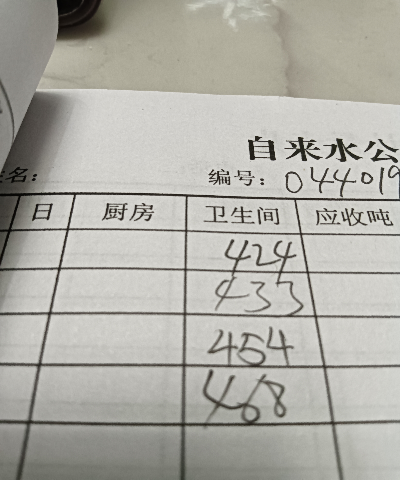 自来水公
名： 编号：044019
日 厨房 卫生间 应收吨
424
433
454
468